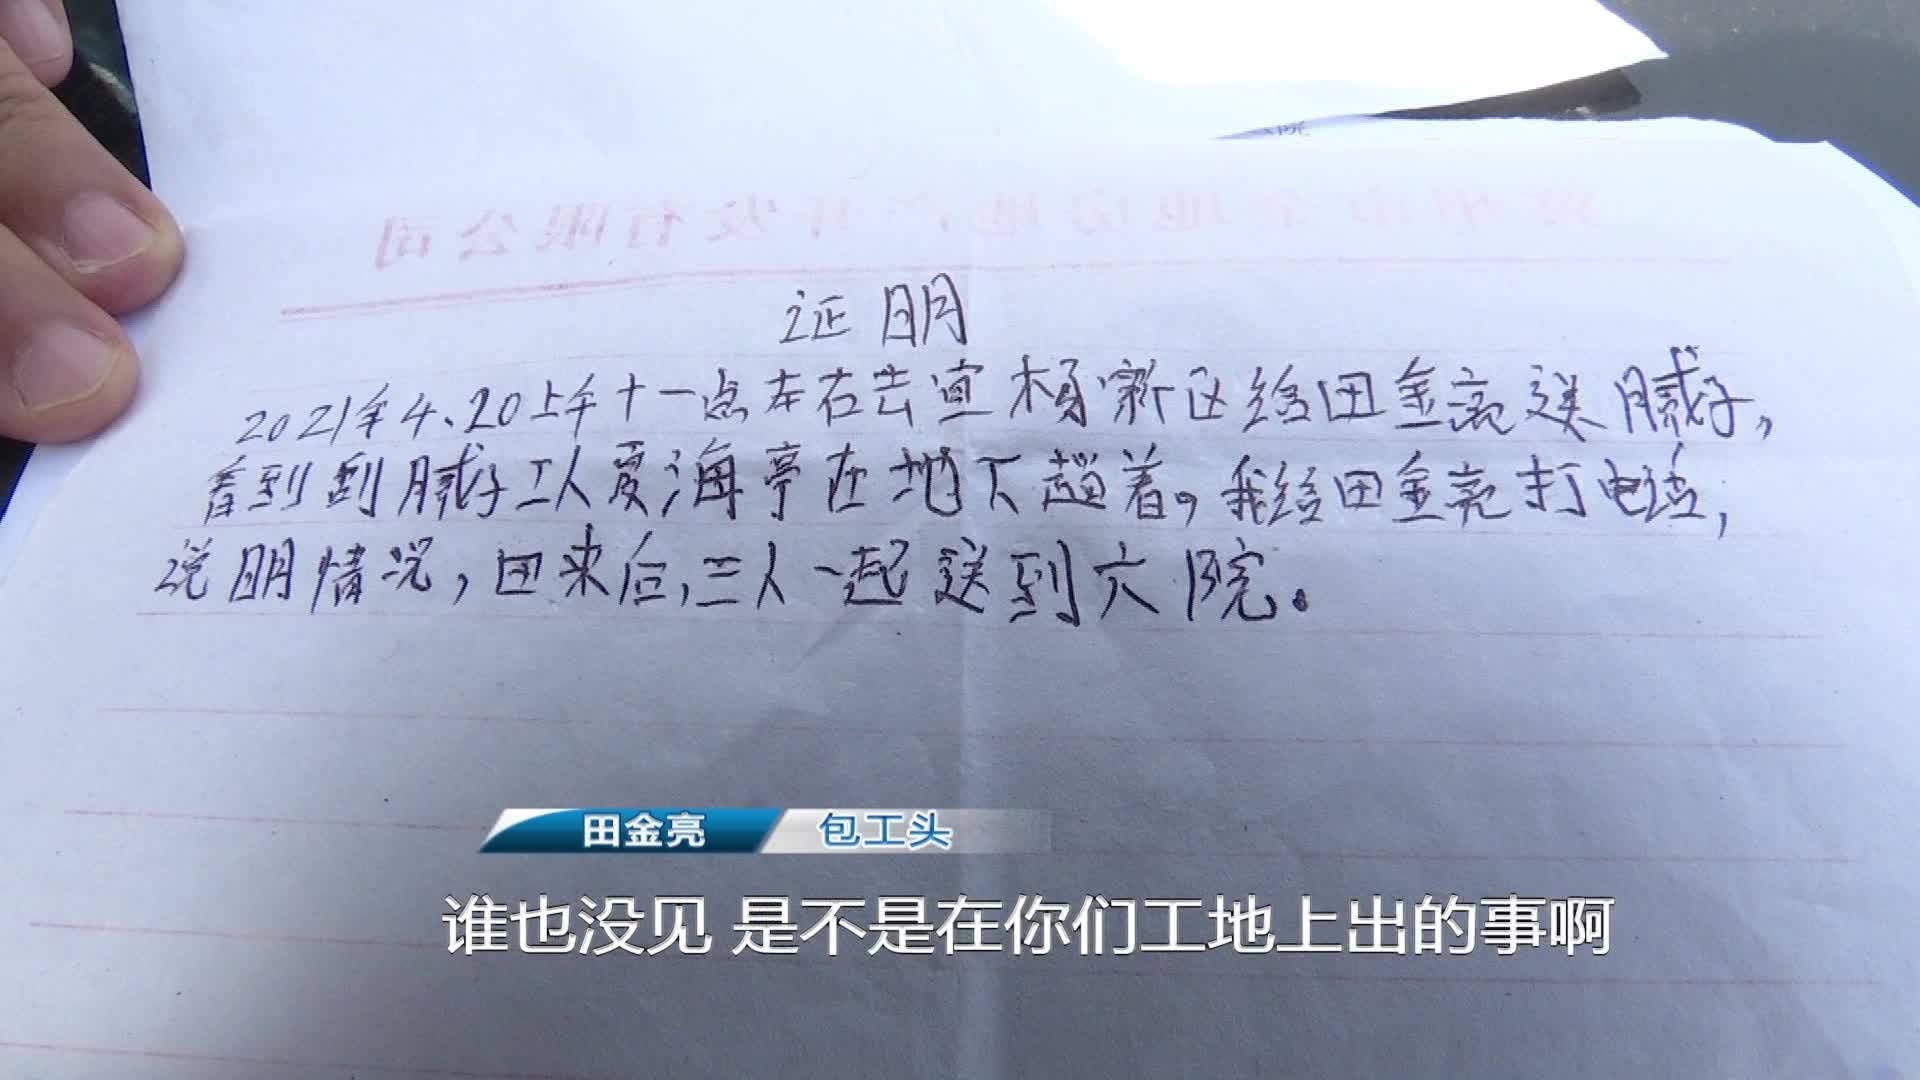 院
州市金地房地产开发有限公司
证明
2021年4、20上午十一点左右去宜杨新区给田金亮送腻子,
看到刮腻子工人夏海亭在地下趟着。我给田金亮打电话,
说明情况,回来后,三人一起送到六院。
田金亮 包工头
谁也没见 是不是在你们工地上出的事啊